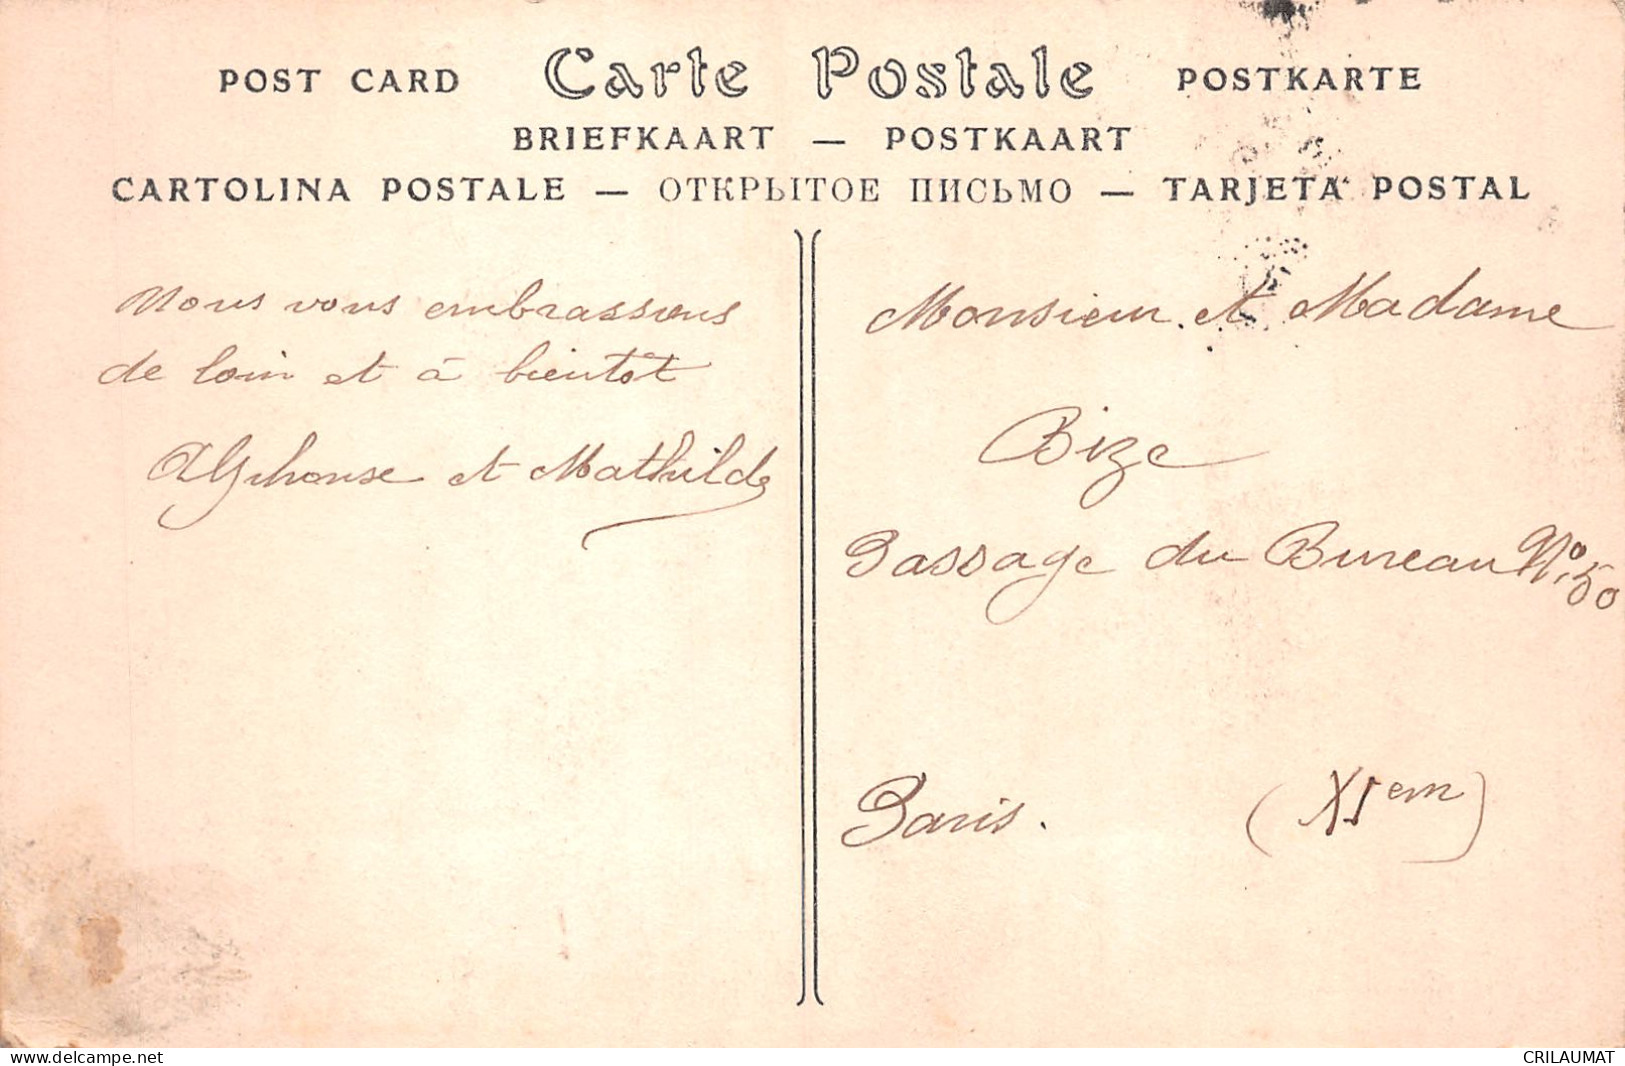 POST CARD Carte Postale POSTKARTE
BRIEFKAART — POSTKAART
CARTOLINA POSTALE — ОТКРЫТОЕ ПИСЬМО — TARJETA POSTAL
Nous vous embrassons
de loin et à bientôt
Alphonse et Mathilde
Monsieur et Madame
Bize
Passage du Bureau No 50
Paris. (XIem)
delcampe.net
CRILAUMAT